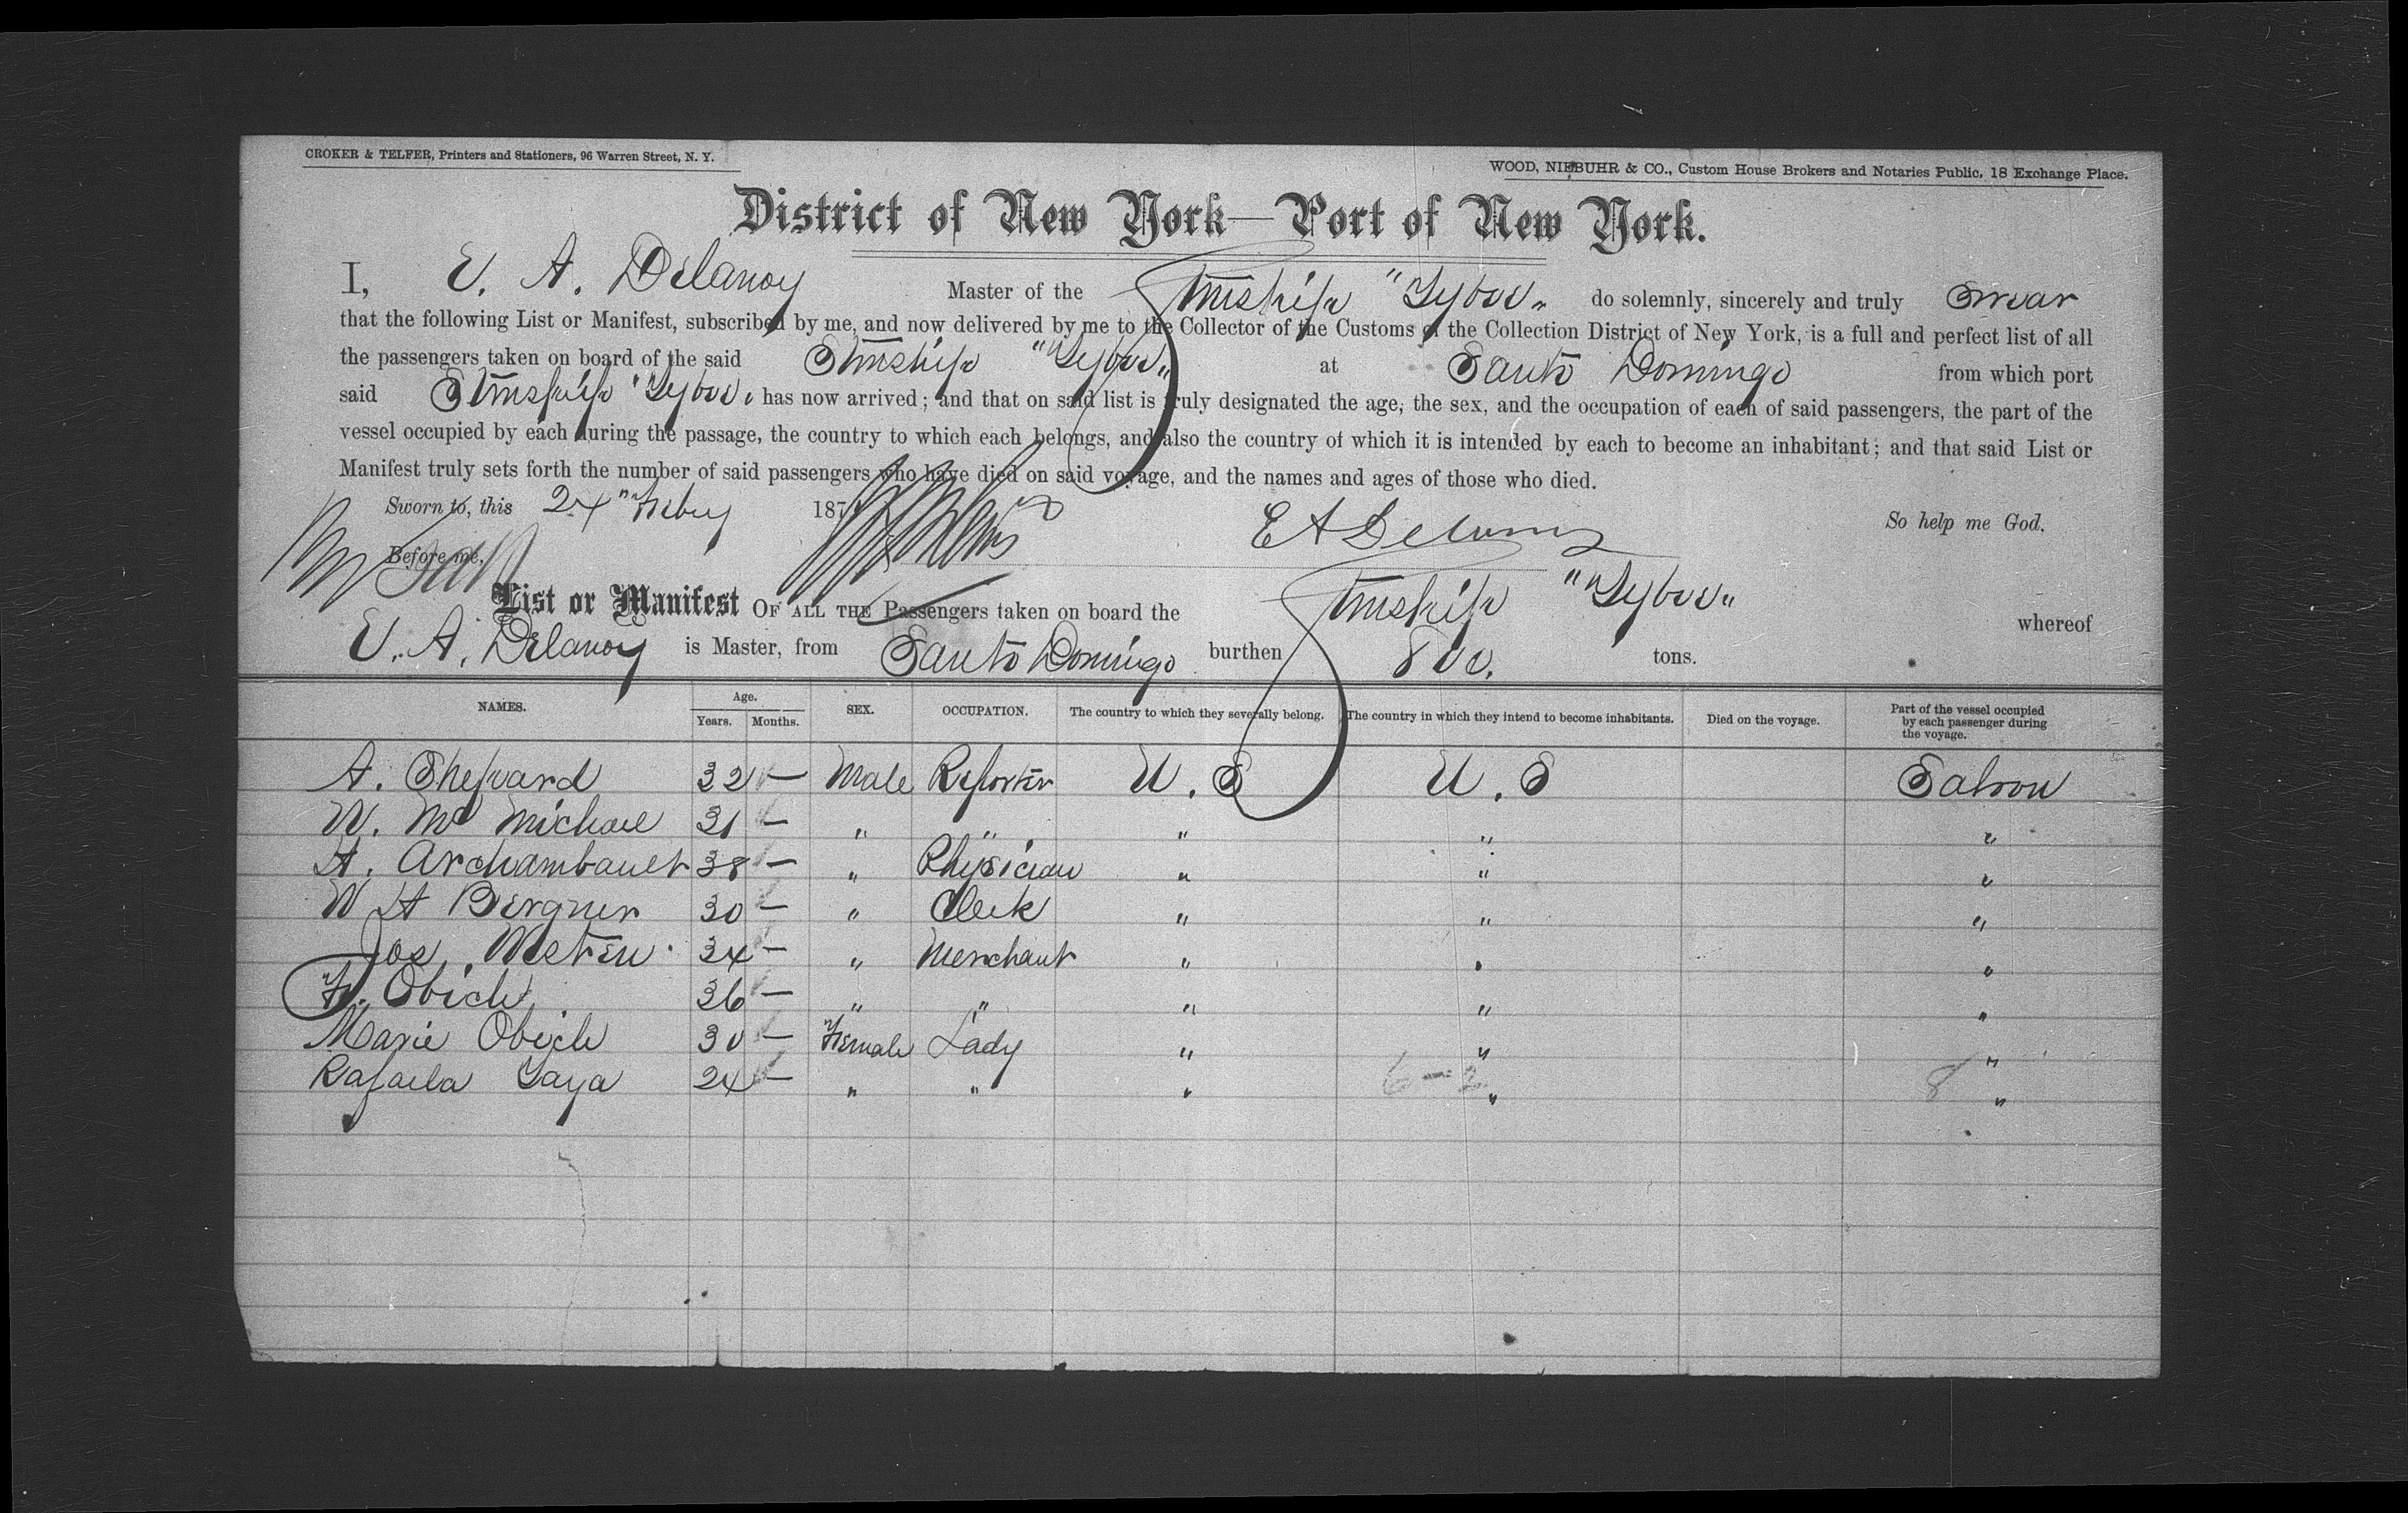 CROKER & TELFER, Printers and Stationers, 96 Warren Street, N. Y.
WOOD, NIEBUHR & CO., Custom House Brokers and Notaries Public, 18 Exchange Place.
District of New York—Port of New York.
I, E. A. Delanoy Master of the Stmship "Tybee" do solemnly, sincerely and truly Swear
that the following List or Manifest, subscribed by me, and now delivered by me to the Collector of the Customs of the Collection District of New York, is a full and perfect list of all
the passengers taken on board of the said Stmship "Tybee" at Santo Domingo from which port
said Stmship "Tybee" has now arrived; and that on said list is truly designated the age, the sex, and the occupation of each of said passengers, the part of the
vessel occupied by each during the passage, the country to which each belongs, and also the country of which it is intended by each to become an inhabitant; and that said List or
Manifest truly sets forth the number of said passengers who have died on said voyage, and the names and ages of those who died.
Sworn to, this 24" Feby 187 So help me God.
E A Delanoy
Before me,
List or Manifest OF ALL THE Passengers taken on board the Stmship "Tybee" whereof
E. A. Delanoy is Master, from Santo Domingo burthen 800. tons.
NAMES. Age. Years. Months. SEX. OCCUPATION. The country to which they severally belong. The country in which they intend to become inhabitants. Died on the voyage. Part of the vessel occupied by each passenger during the voyage.
A. Shepard 32 — Male Reporter U. S U. S Saloon
W. Mc Michael 31 — " " " " "
H. Archambault 38 — " Physician " " "
W H Bergner 30 — " Clerk " " "
Jos. 34 — " Merchant " " "
F. Obich 36 — " " " " "
Marie Obich 30 — Female Lady " " "
Rafaela Gaya 24 — " " " " "
6 — 2 8